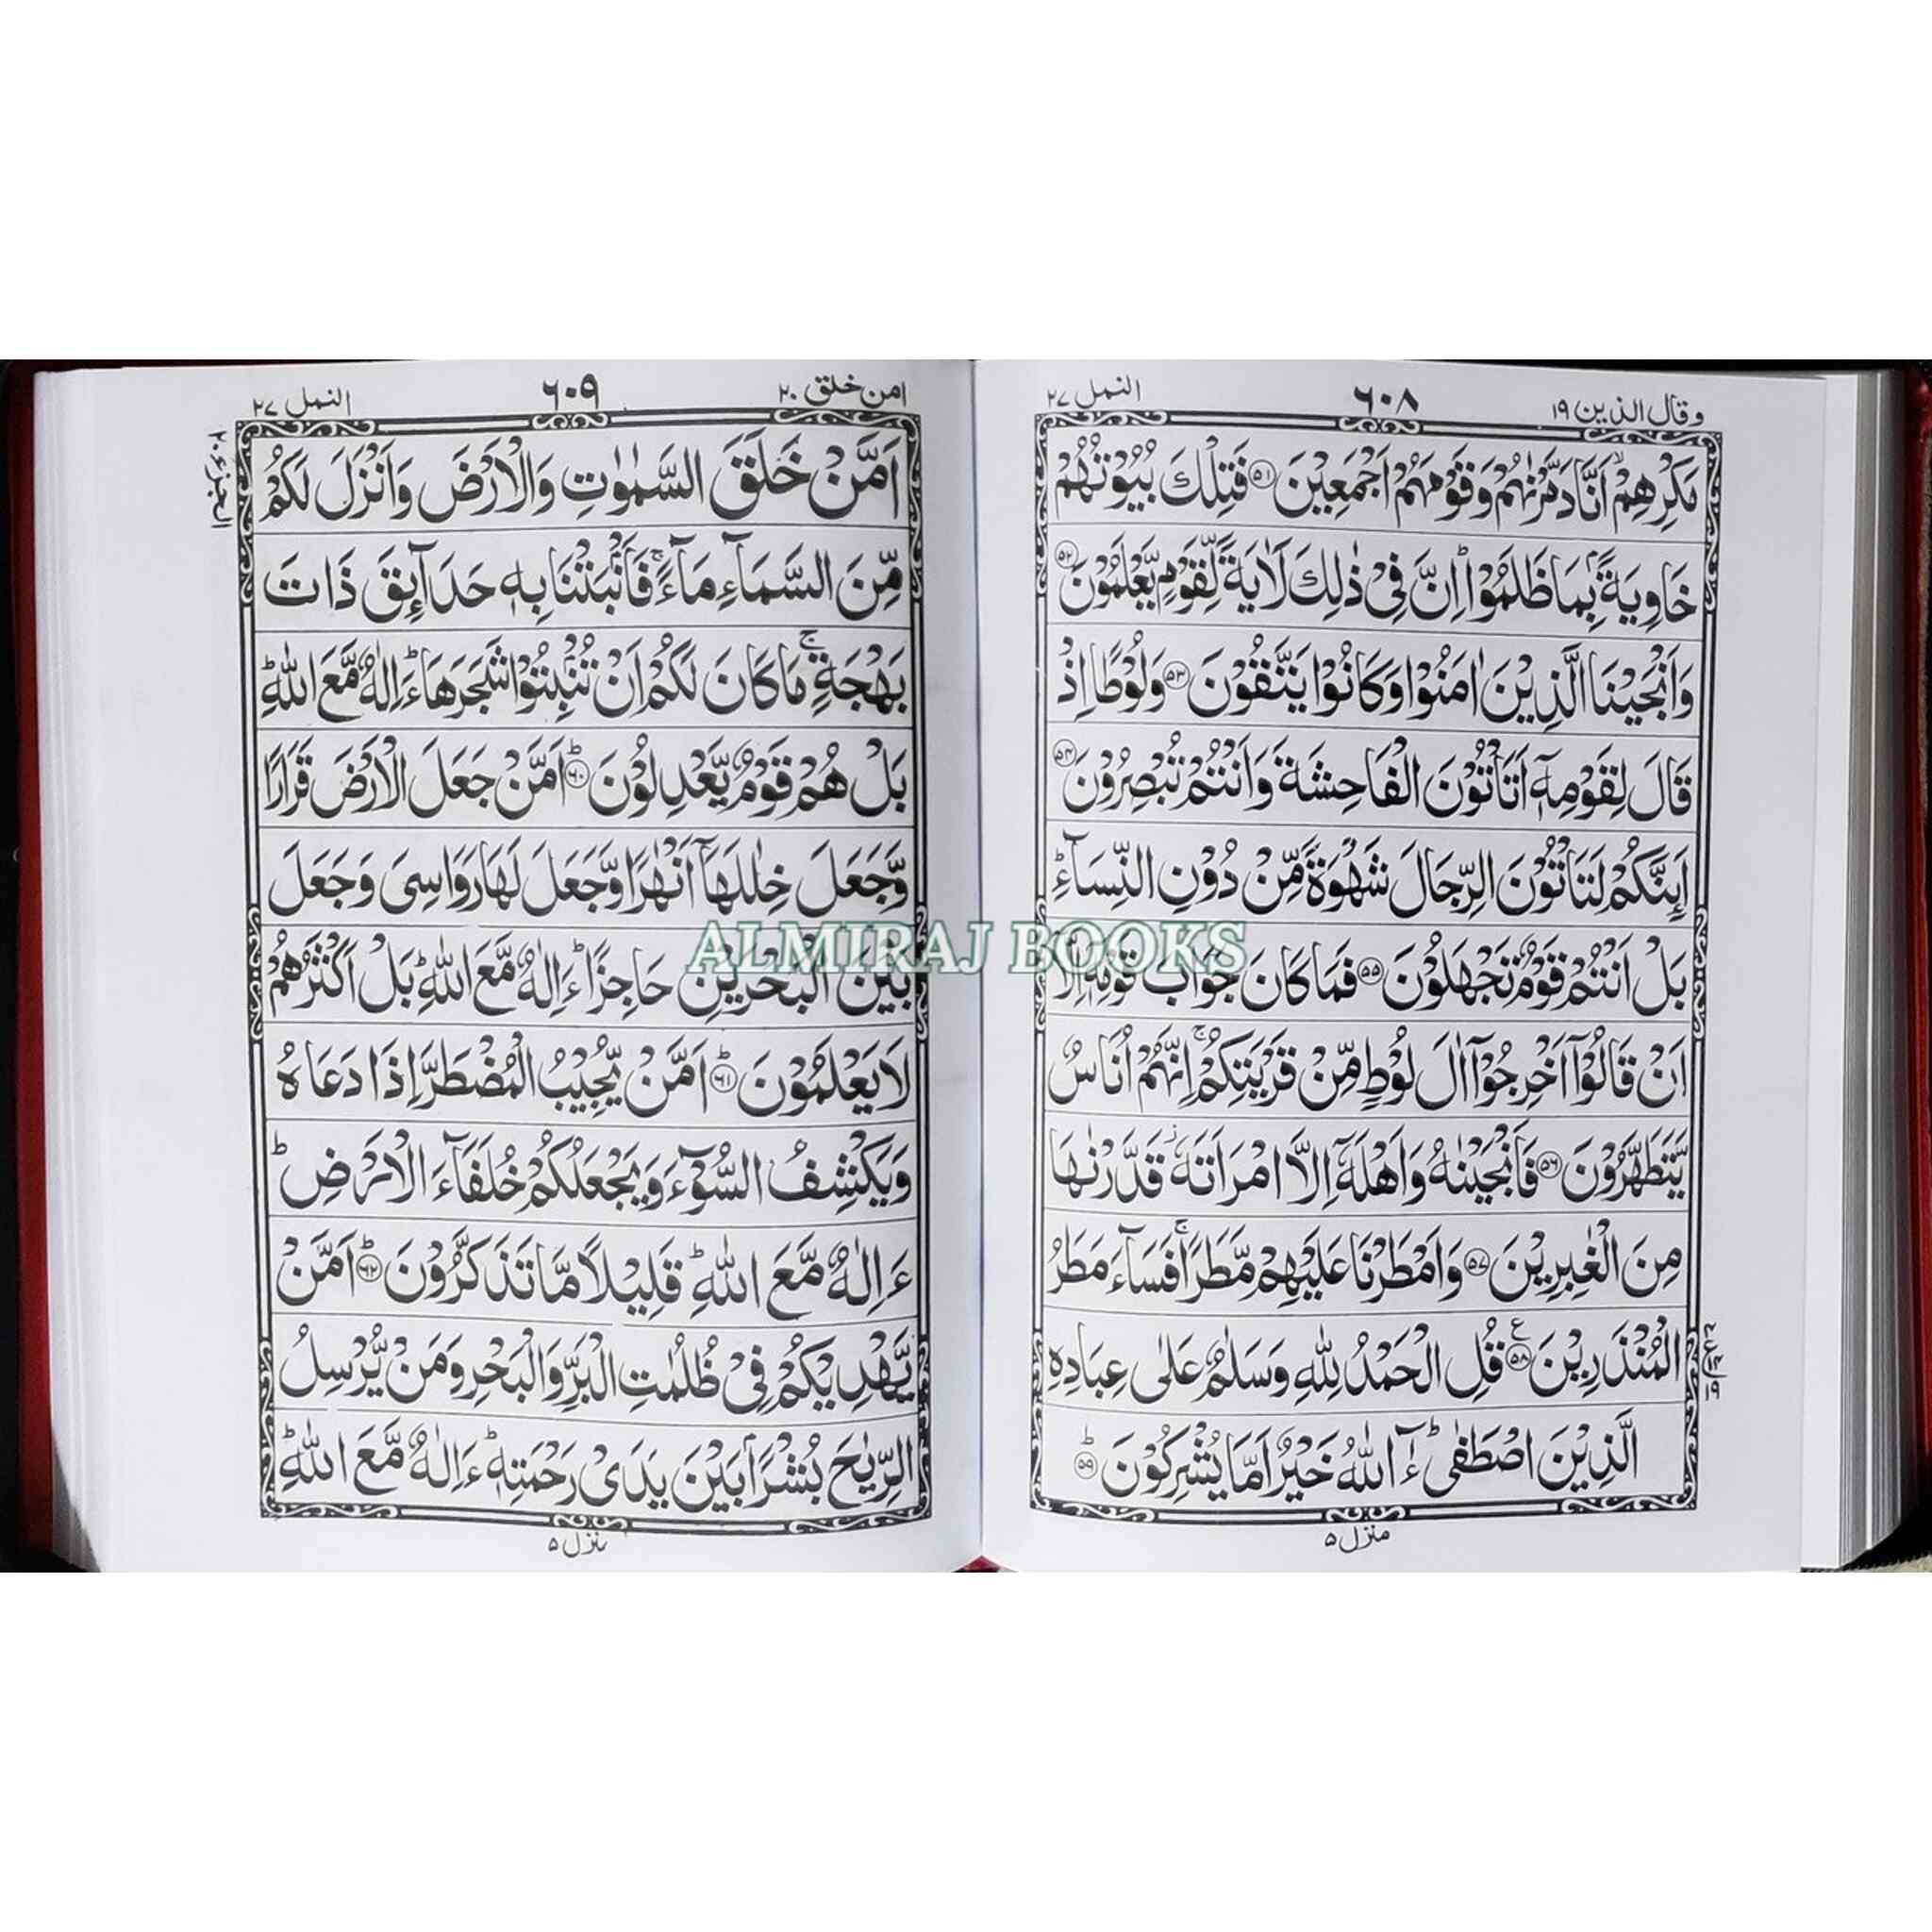 وقال الذين ١٩
٦٠٨
النمل ٢٧
مَكْرِهِمْ ۙ اَنَّا دَمَّرْنٰهُمْ وَقَوْمَهُمْ اَجْمَعِيْنَ ۝٥١ فَتِلْكَ بُيُوْتُهُمْ
خَاوِيَةًۢ بِمَا ظَلَمُوْا ؕ اِنَّ فِيْ ذٰلِكَ لَاٰيَةً لِّقَوْمٍ يَّعْلَمُوْنَ ۝٥٢
وَاَنْجَيْنَا الَّذِيْنَ اٰمَنُوْا وَكَانُوْا يَتَّقُوْنَ ۝٥٣ وَلُوْطًا اِذْ
قَالَ لِقَوْمِهٖٓ اَتَاْتُوْنَ الْفَاحِشَةَ وَاَنْتُمْ تُبْصِرُوْنَ ۝٥٤
اَئِنَّكُمْ لَتَاْتُوْنَ الرِّجَالَ شَهْوَةً مِّنْ دُوْنِ النِّسَآءِ ؕ
بَلْ اَنْتُمْ قَوْمٌ تَجْهَلُوْنَ ۝٥٥ فَمَا كَانَ جَوَابَ قَوْمِهٖٓ اِلَّآ
اَنْ قَالُوْٓا اَخْرِجُوْٓا اٰلَ لُوْطٍ مِّنْ قَرْيَتِكُمْ ۚ اِنَّهُمْ اُنَاسٌ
يَّتَطَهَّرُوْنَ ۝٥٦ فَاَنْجَيْنٰهُ وَاَهْلَهٗٓ اِلَّا امْرَاَتَهٗ ؗ قَدَّرْنٰهَا
مِنَ الْغٰبِرِيْنَ ۝٥٧ وَاَمْطَرْنَا عَلَيْهِمْ مَّطَرًا ۚ فَسَآءَ مَطَرُ
الْمُنْذَرِيْنَ ۝٥٨ ع قُلِ الْحَمْدُ لِلّٰهِ وَسَلٰمٌ عَلٰى عِبَادِهِ
الَّذِيْنَ اصْطَفٰى ؕ ءٰٓاللّٰهُ خَيْرٌ اَمَّا يُشْرِكُوْنَ ۝٥٩ ؕ
منزل ٥
امن خلق ٢٠
٦٠٩
النمل ٢٧
الجزء ٢٠
اَمَّنْ خَلَقَ السَّمٰوٰتِ وَالْاَرْضَ وَاَنْزَلَ لَكُمْ
مِّنَ السَّمَآءِ مَآءً ۚ فَاَنْۢبَتْنَا بِهٖ حَدَآئِقَ ذَاتَ
بَهْجَةٍ ۚ مَا كَانَ لَكُمْ اَنْ تُنْۢبِتُوْا شَجَرَهَا ؕ ءَاِلٰهٌ مَّعَ اللّٰهِ ؕ
بَلْ هُمْ قَوْمٌ يَّعْدِلُوْنَ ۝٦٠ ؕ اَمَّنْ جَعَلَ الْاَرْضَ قَرَارًا
وَّجَعَلَ خِلٰلَهَآ اَنْهٰرًا وَّجَعَلَ لَهَا رَوَاسِيَ وَجَعَلَ
بَيْنَ الْبَحْرَيْنِ حَاجِزًا ؕ ءَاِلٰهٌ مَّعَ اللّٰهِ ؕ بَلْ اَكْثَرُهُمْ
لَا يَعْلَمُوْنَ ۝٦١ ؕ اَمَّنْ يُّجِيْبُ الْمُضْطَرَّ اِذَا دَعَاهُ
وَيَكْشِفُ السُّوْٓءَ وَيَجْعَلُكُمْ خُلَفَآءَ الْاَرْضِ ؕ
ءَاِلٰهٌ مَّعَ اللّٰهِ ؕ قَلِيْلًا مَّا تَذَكَّرُوْنَ ۝٦٢ ؕ اَمَّنْ
يَّهْدِيْكُمْ فِيْ ظُلُمٰتِ الْبَرِّ وَالْبَحْرِ وَمَنْ يُّرْسِلُ
الرِّيٰحَ بُشْرًۢا بَيْنَ يَدَيْ رَحْمَتِهٖ ؕ ءَاِلٰهٌ مَّعَ اللّٰهِ ؕ
منزل ٥
ALMIRAJ BOOKS